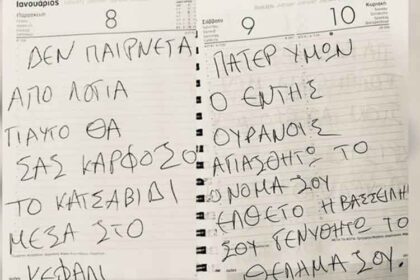 Ιανουάριος
Παρασκευή
8
ΔΕΝ ΠΑΙΡΝΕΤΑΙ
ΑΠΟ ΛΟΓΙΑ
ΓΙΑΥΤΟ ΘΑ
ΣΑΣ ΚΑΡΦΟΣΟ
ΤΟ ΚΑΤΣΑΒΙΔΙ
ΜΕΣΑ ΣΤΟ
ΚΕΦΑΛΙ
Σάββατο
9
10
Κυριακή
ΠΑΤΕΡ ΥΜΩΝ
Ο ΕΝΤΗΣ
ΟΥΡΑΝΟΙΣ
ΑΓΙΑΣΘΗΤΩ ΤΟ
ΟΝΟΜΑ ΣΟΥ
ΕΛΘΕΤΟ Η ΒΑΣΣΕΙΛΗ
ΣΟΥ ΓΕΝΥΘΗΤΩ ΤΟ
ΘΕΛΗΜΑ ΣΟΥ.